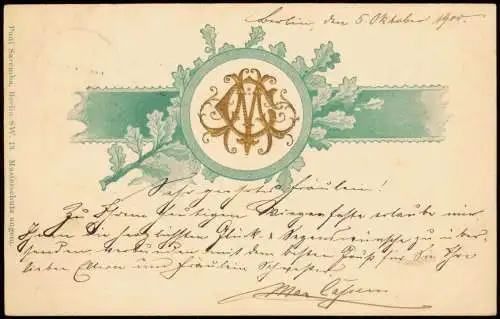 Berlin, den 5 Oktober 1900.
Paul Saremba, Berlin SW. 13. Musterschutz angem.
Sehr geehrtes Fräulein!
Zu Ihrem heutigen Wiegenfeste erlaube mir
Ihnen die herzlichsten Glück & Segenswünsche zu über-
senden verbunden mit dem besten Gruß für Sie Ihre
lieben Eltern und Fräulein Schwester
Max